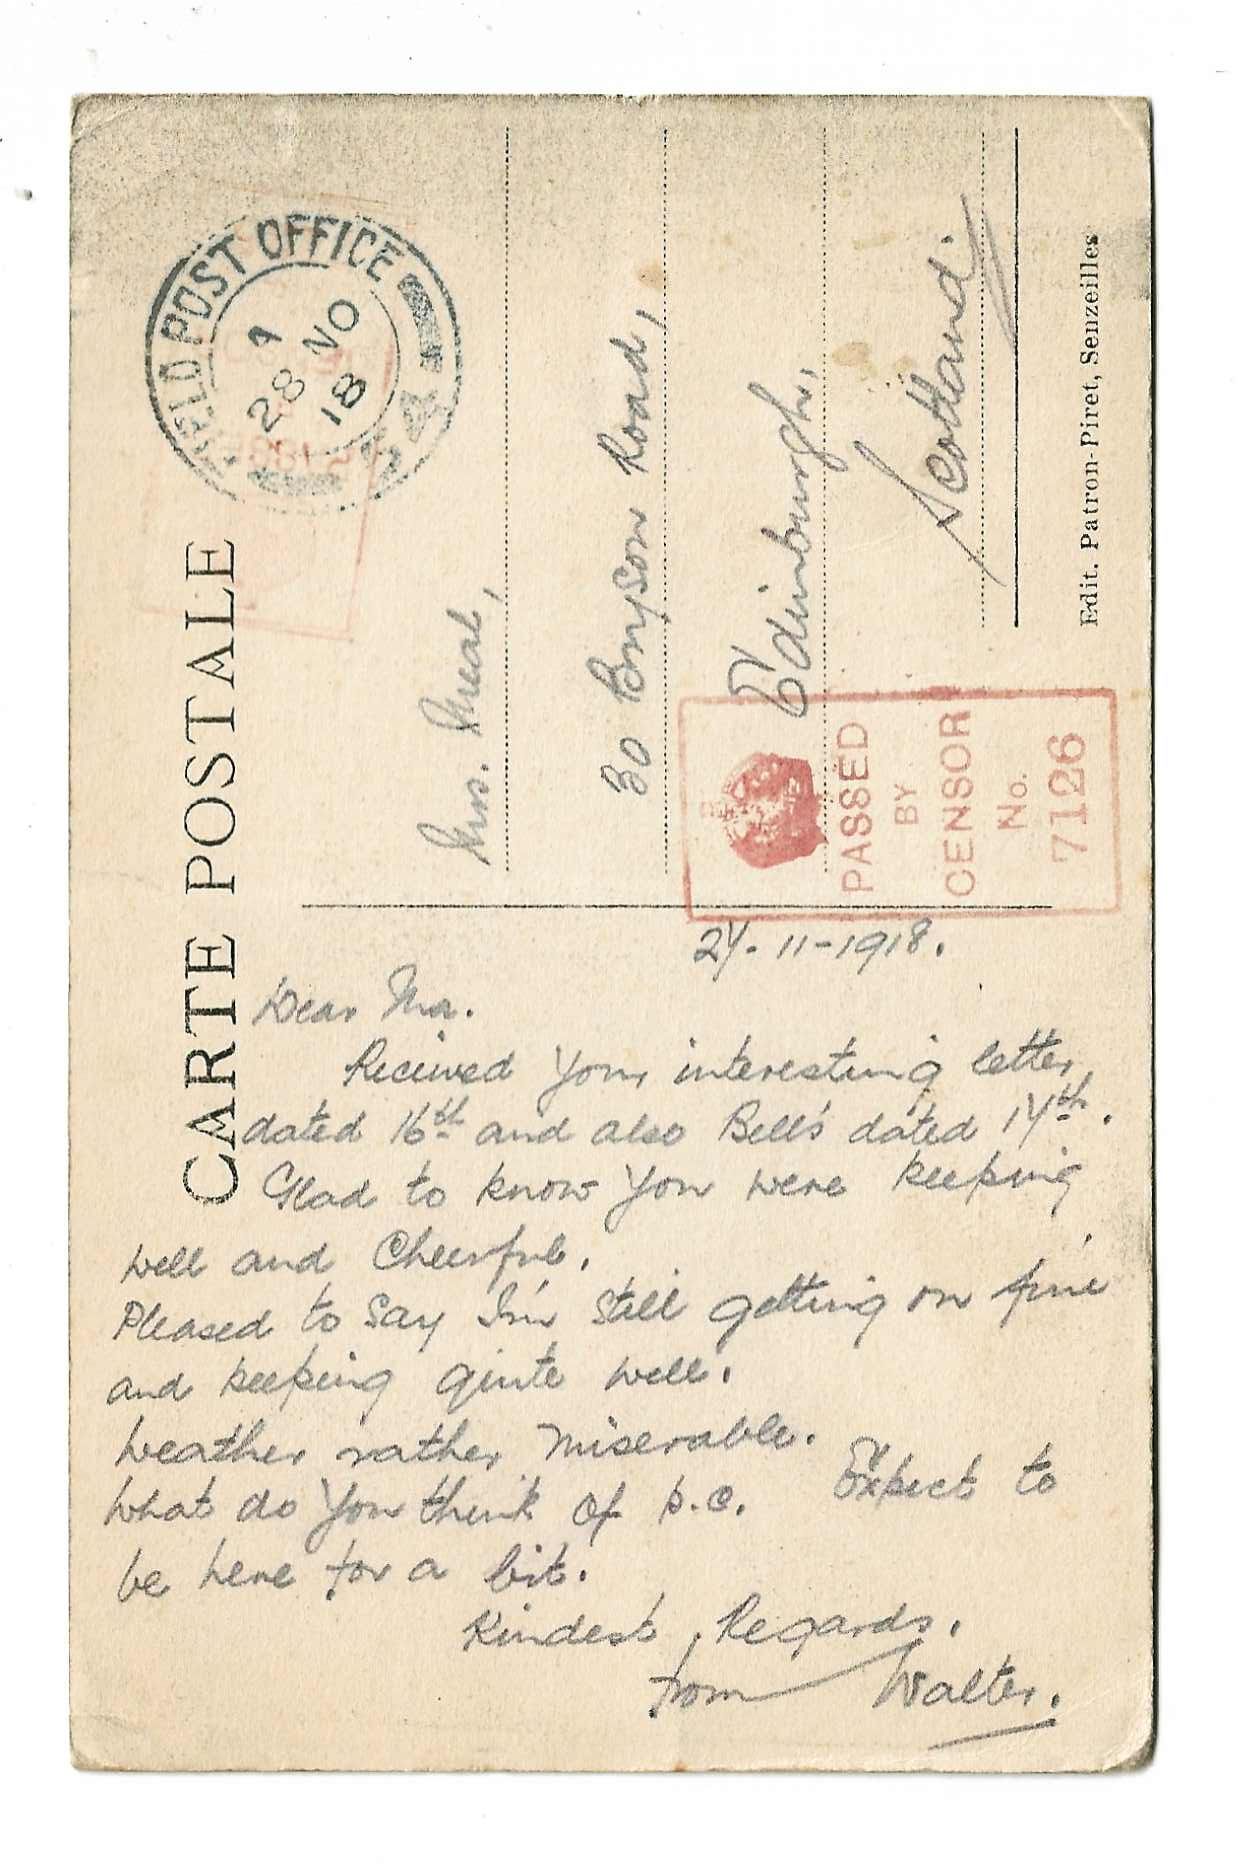 CARTE POSTALE
FIELD POST OFFICE
28 NO
18
Mrs.
30 Bryson Road,
Edinburgh,
Scotland.
Edit. Patron-Piret, Senzeilles
PASSED
BY
CENSOR
No.
7126
27-11-1918.
Dear Ma.
Received your interesting letter,
dated 16th and also Bell's dated 17th.
Glad to know you were keeping
well and Cheerful.
Pleased to say I'm still getting on fine
and keeping quite well.
Weather rather miserable.
What do you think of p.c. Expect to
be here for a bit.
Kindest Regards.
from Walter.